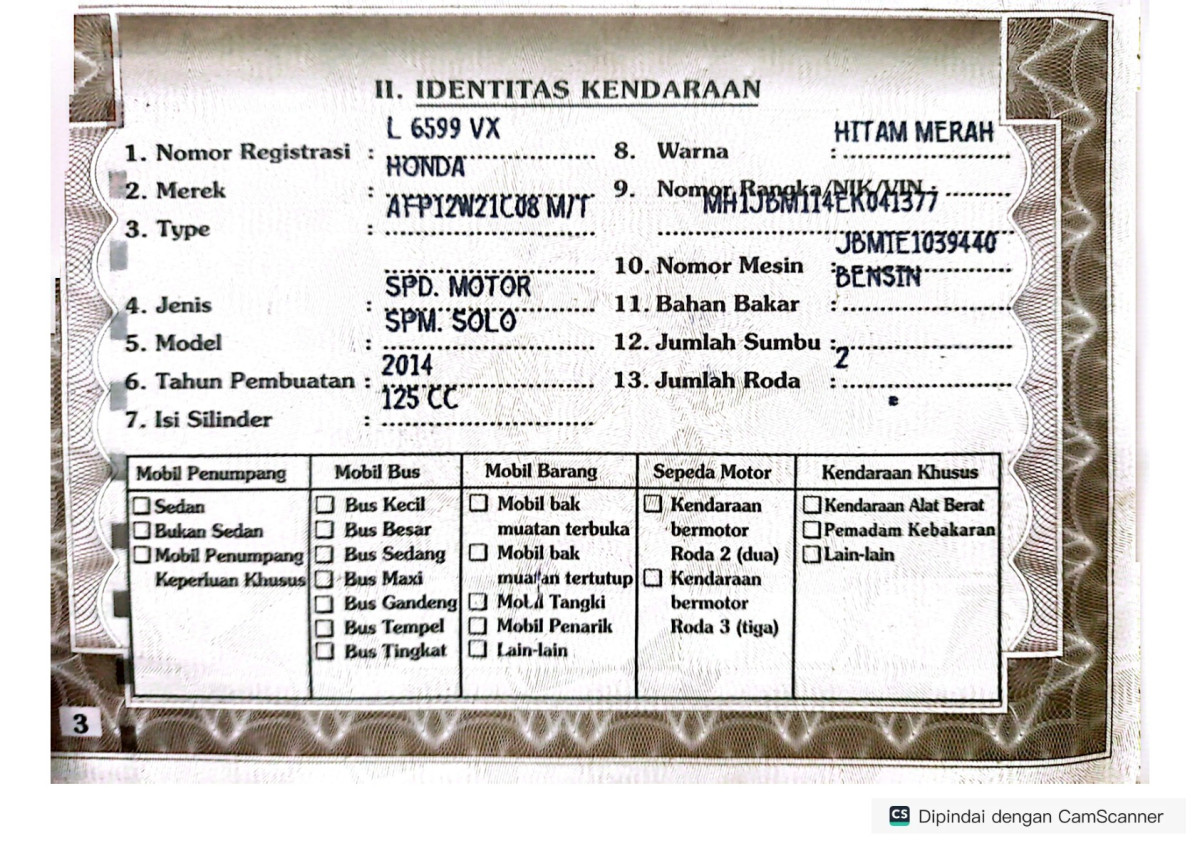 II. IDENTITAS KENDARAAN
1. Nomor Registrasi : L 6599 VX
2. Merek : HONDA
3. Type : AFP12W21C08 M/T
4. Jenis : SPD. MOTOR
5. Model : SPM. SOLO
6. Tahun Pembuatan : 2014
7. Isi Silinder : 125 CC
8. Warna : HITAM MERAH
9. Nomor Rangka/NIK/VIN : MH1JBM114EK041377
10. Nomor Mesin : JBM1E1039440
11. Bahan Bakar : BENSIN
12. Jumlah Sumbu :
13. Jumlah Roda : 2
Mobil Penumpang
Sedan
Bukan Sedan
Mobil Penumpang
Keperluan Khusus
Mobil Bus
Bus Kecil
Bus Besar
Bus Sedang
Bus Maxi
Bus Gandeng
Bus Tempel
Bus Tingkat
Mobil Barang
Mobil bak
muatan terbuka
Mobil bak
muatan tertutup
Mobil Tangki
Mobil Penarik
Lain-lain
Sepeda Motor
Kendaraan
bermotor
Roda 2 (dua)
Kendaraan
bermotor
Roda 3 (tiga)
Kendaraan Khusus
Kendaraan Alat Berat
Pemadam Kebakaran
Lain-lain
3
CS Dipindai dengan CamScanner